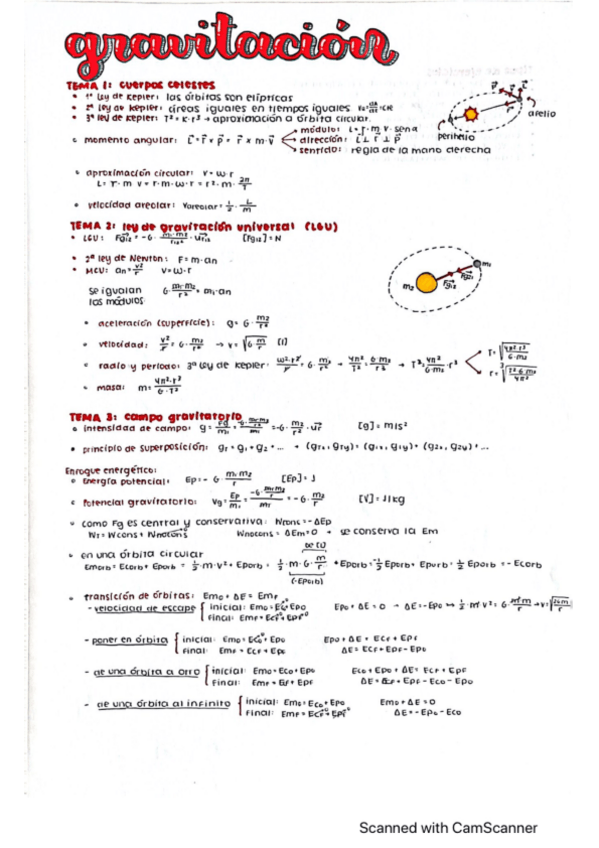 gravitación
TEMA 1: cuerpos celestes
• 1ª Ley de Kepler: las órbitas son elípticas
• 2ª ley de kepler: áreas iguales en tiempos iguales
• 3ª ley de kepler: T² = K·r³ → aproximación a órbita circular
perihelio
afelio
• momento angular: L = r × p = r × m·v
módulo: L = r·m·v·senα
dirección: L ⊥ r ⊥ p
sentido: regla de la mano derecha
• aproximación circular: v = ω·r
L = r·m v = r·m·ω·r = r²·m·2π/T
• velocidad areolar: Vareolar = 1/2 · L/m
TEMA 2: ley de gravitación universal (LGU)
• LGU: Fg12 = -G · m1·m2/r12² · ur12 [Fg12] = N
• 2ª ley de Newton: F = m·an
• MCU: an = v²/r v = ω·r
se igualan
los módulos
G·m1·m2/r² = m1·an
m2
m1
Fg12
Fg21
• aceleración (superficie): g = G·m2/r²
• velocidad: v²/r = G·m2/r² → v = √(G m/r) (1)
• radio y periodo: 3ª ley de Kepler: ω²·r²/r = G·m2/r² → 4π²/T² = G·m2/r³ → T² = 4π²/G·m2 · r³
T = √(4π²·r³/G·m2)
r = ∛(T²·G·m2/4π²)
• masa: m = 4π²·r³/G·T²
TEMA 3: campo gravitatorio
• intensidad de campo: g = Fg/m1 = -G·m2/r² · ur [g] = m/s²
• principio de superposición: gT = g1 + g2 + ... → (gTx, gTy) = (g1x, g1y) + (g2x, g2y) + ...
Enfoque energético:
• Energía potencial: Ep = -G · m1·m2/r [Ep] = J
• Potencial gravitatorio: Vg = Ep/m1 = -G·m2/r [V] = J/kg
• como Fg es central y conservativa: Wcons = -ΔEp
WT = Wcons + Wnocons Wnocons = ΔEm = 0 → se conserva la Em
• en una órbita circular
de (1)
Emorb = Ecorb + Eporb = 1/2·m·v² + Eporb = 1/2·m·G·m/r + Eporb = -1/2 Eporb + Eporb = 1/2 Eporb = -Ecorb
(-Eporb)
• transición de órbitas: Em0 + ΔE = Emf
- velocidad de escape
inicial: Em0 = Ec0 + Ep0
final: Emf = Ecf⁰ + Epf⁰
Ep0 + ΔE = 0 → ΔE = -Ep0
- poner en órbita
inicial: Em0 = Ec0⁰ + Ep0
final: Emf = Ecf + Epf
Ep0 + ΔE = Ecf + Epf
ΔE = Ecf + Epf - Ep0
- de una órbita a otro
inicial: Em0 = Ec0 + Ep0
final: Emf = Ecf + Epf
Ec0 + Ep0 + ΔE = Ecf + Epf
ΔE = Ecf + Epf - Ec0 - Ep0
- de una órbita al infinito
inicial: Em0 = Ec0 + Ep0
final: Emf = Ecf⁰ + Epf⁰
Em0 + ΔE = 0
ΔE = -Ep0 - Ec0
Scanned with CamScanner